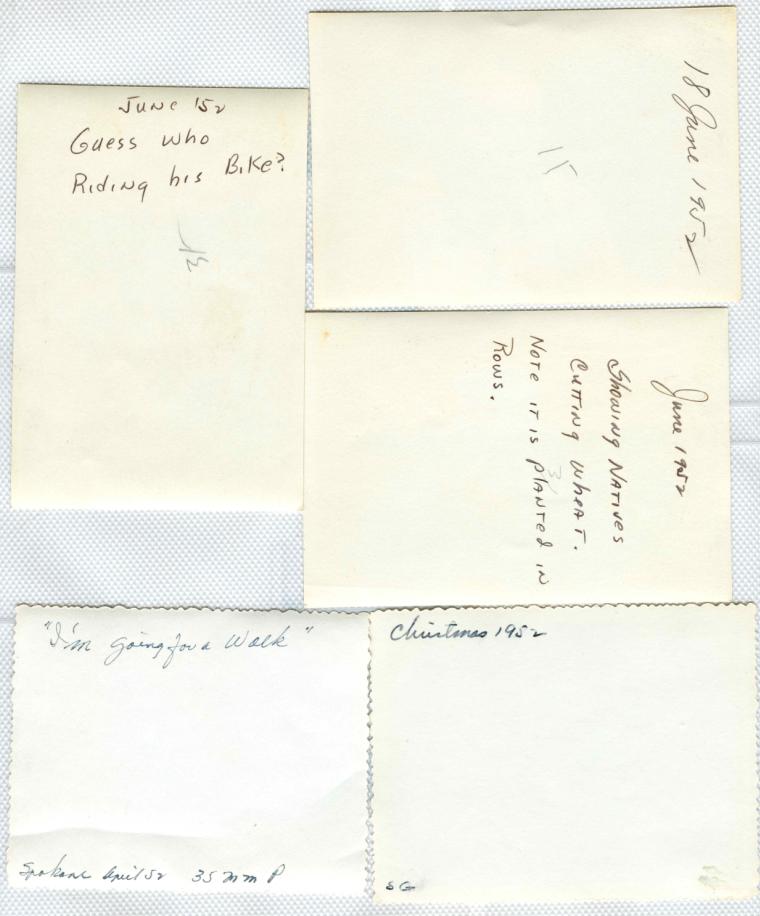 June '52
Guess who
Riding his Bike?
18 June 1952
15
June 1952
Showing Natives
Cutting wheat.
Note it is planted in
Rows.
"I'm going for a Walk"
Spokane April 52 35 mm P
Christmas 1952
SG